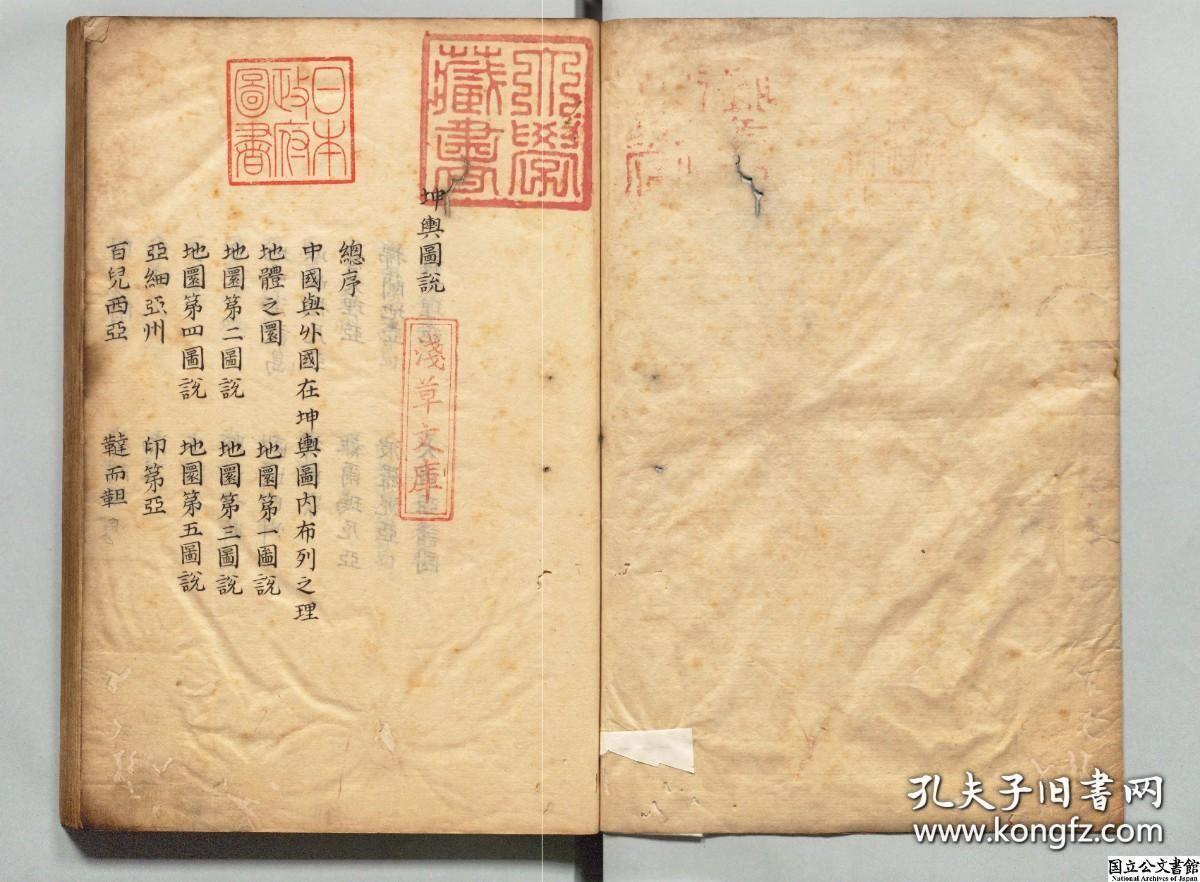 大學藏書
日本政府圖書
淺草文庫
坤輿圖說
總序
中國與外國在坤輿圖內布列之理
地體之圜 地圜第一圖說
地圜第二圖說 地圜第三圖說
地圜第四圖說 地圜第五圖說
亞細亞州 印第亞
百兒西亞 韃而靼
孔夫子旧书网
www.kongfz.com
国立公文書館
National Archives of Japan